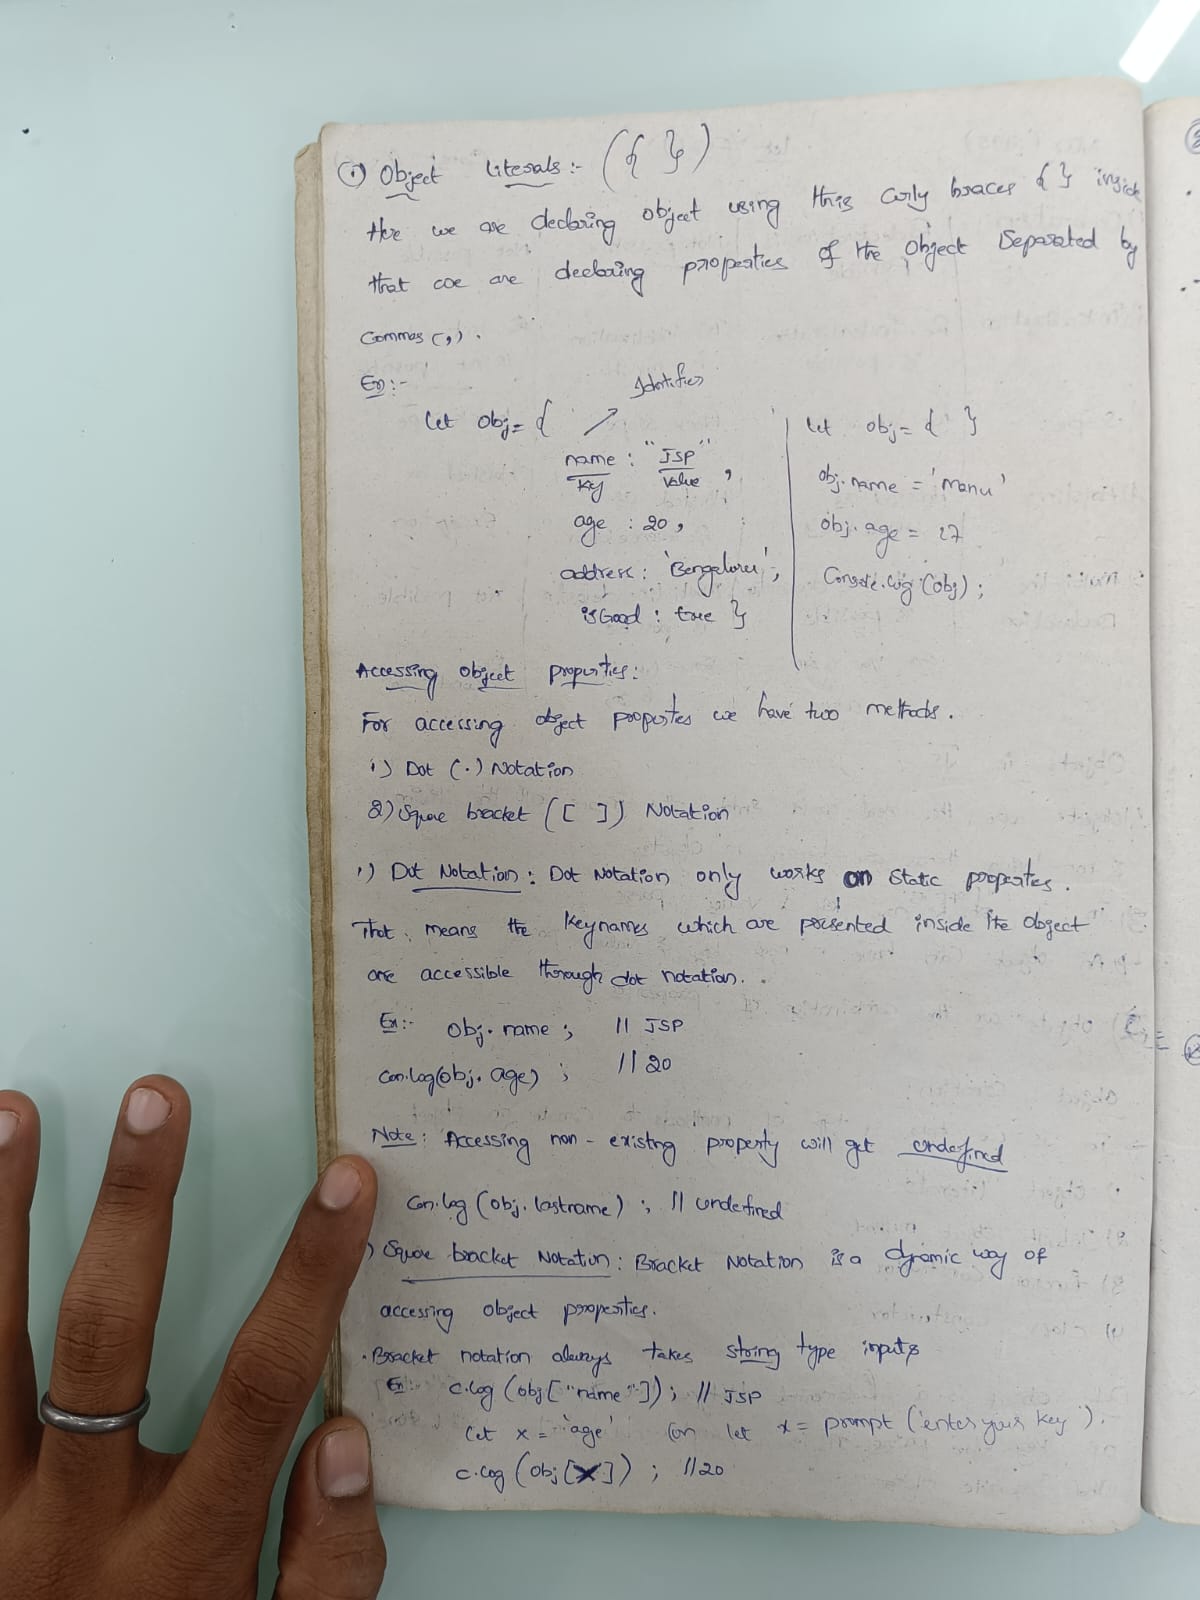 ① Object Literals :- ({ })
Here we are declaring object using this curly braces { } inside
that we are declaring properties of the object separated by
Commas (,) .
Ex :-
Identifier
let obj = {
name : "JSP" ,
Key value
age : 20 ,
address : 'Bengaluru' ,
isGood : true }
let obj = { }
obj.name = 'manu'
obj.age = 27
Console.log (obj) ;
Accessing object properties :
For accessing object properties we have two methods .
1) Dot (.) Notation
2) Square bracket ([ ]) Notation
1) Dot Notation : Dot Notation only works on static properties .
That means the keynames which are presented inside the object
are accessible through dot notation .
Ex :- obj. name ; // JSP
Con.log(obj. age) ; // 20
Note : Accessing non - existing property will get undefined
Con.log (obj. lastname) ; // undefined
) Square bracket Notation : Bracket Notation is a dynamic way of
accessing object properties .
. Bracket notation always takes string type inputs
Ex : c.log (obj ["name"]) ; // JSP
let x = 'age' (or let x = prompt ('enter your key') .
c.log (obj [x]) ; // 20